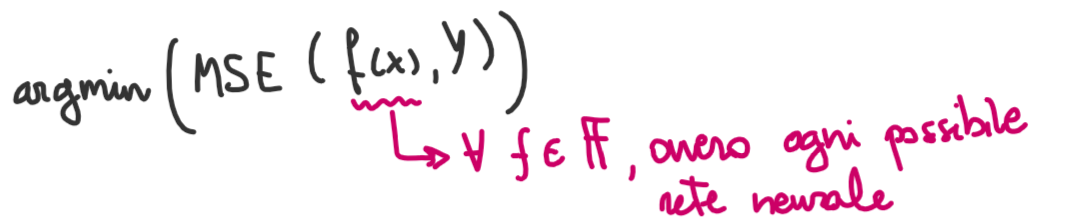 argmin (MSE (f(x), y))
∀ f ∈ 𝔽, ovvero ogni possibile
rete neurale